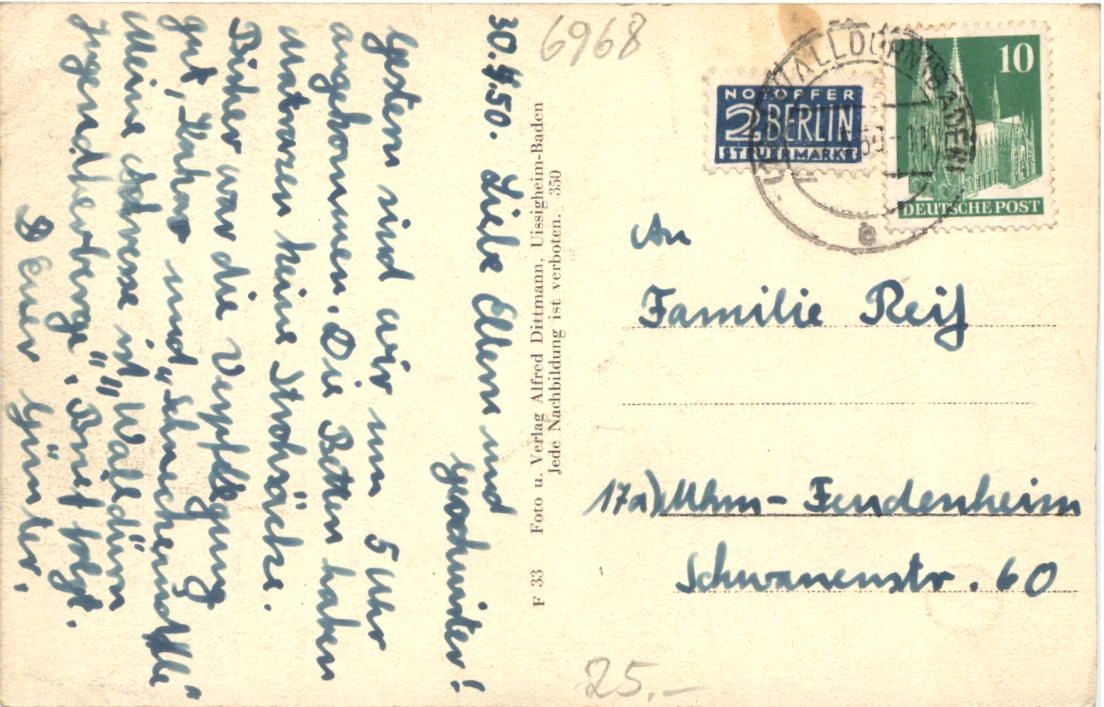 6968
30.4.50. Liebe Eltern und
Geschwister!
Gestern sind wir um 5 Uhr
angekommen. Die Betten haben
Matrazen keine Strohsäcke.
Bisher war die Verpflegung
gut, Kakao und „Schneckennudle“
Meine Adresse ist „Walldürn
Jugendherberge“. Brief folgt.
Euer Günter.
F 33 Foto u. Verlag Alfred Dittmann, Uissigheim-Baden
Jede Nachbildung ist verboten. 350
NOTOPFER
2 BERLIN
STEUERMARKE
10
DEUTSCHE POST
WALLDÜRN (BADEN)
e
An
Familie Reif
17a) Mhm-Feudenheim
Schwanenstr. 60
25.-